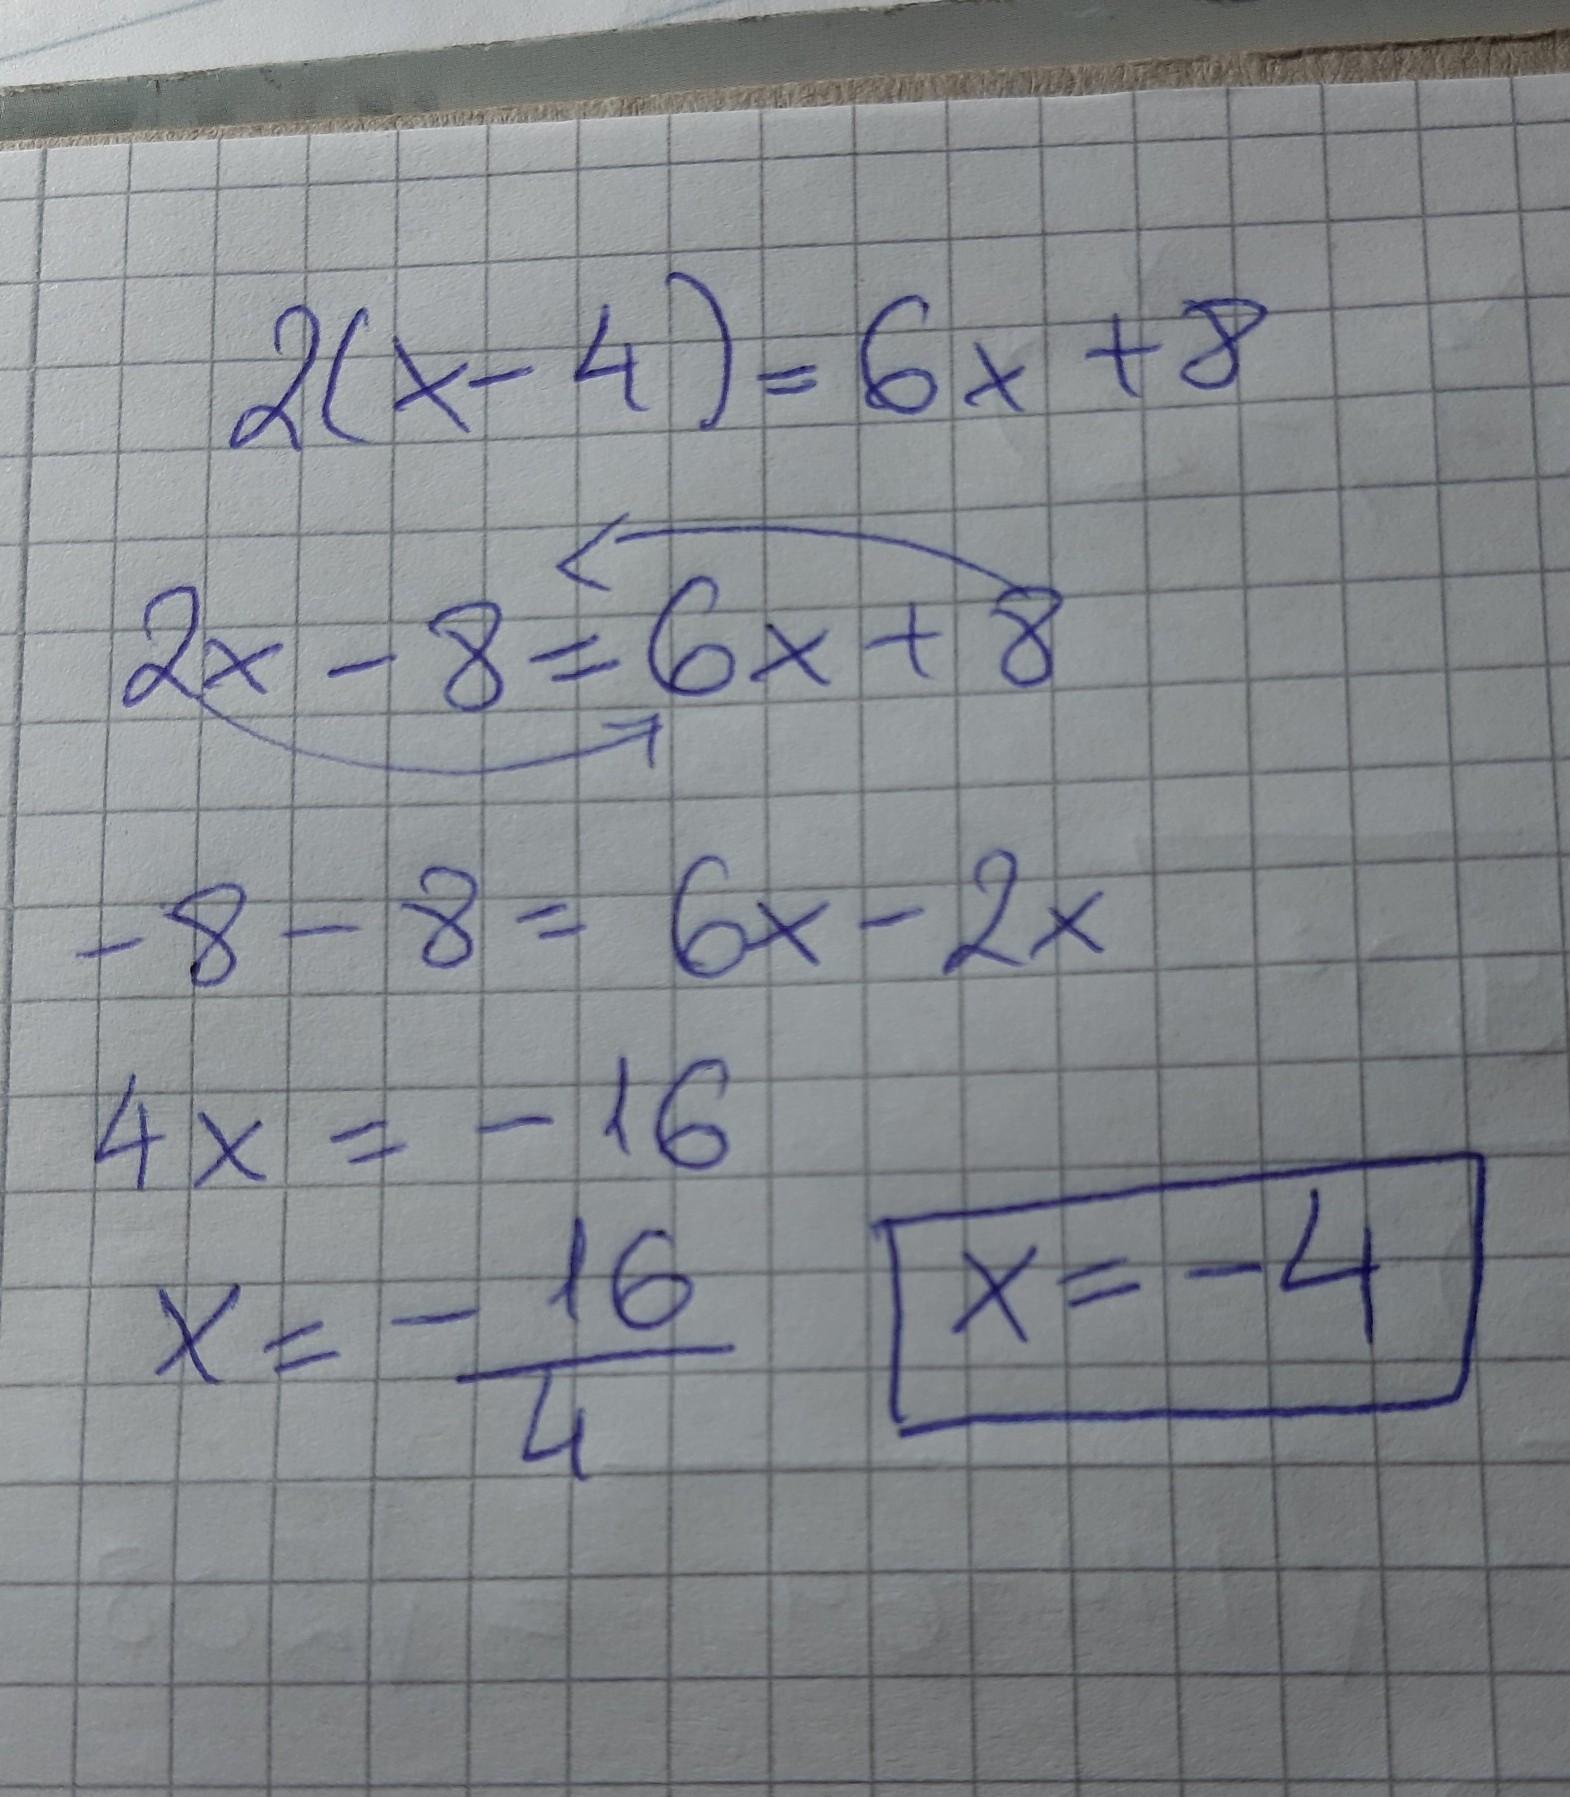 2(x-4)=6x+8
2x-8=6x+8
-8-8=6x-2x
4x=-16
x=-16/4
x=-4